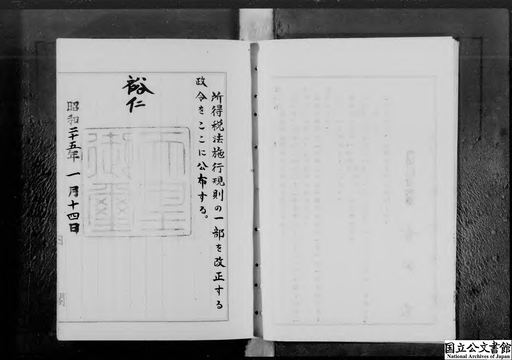 所得税法施行規則の一部を改正する
政令をここに公布する。
裕仁
昭和二十五年一月十四日
天皇
御璽
国立公文書館
National Archives of Japan